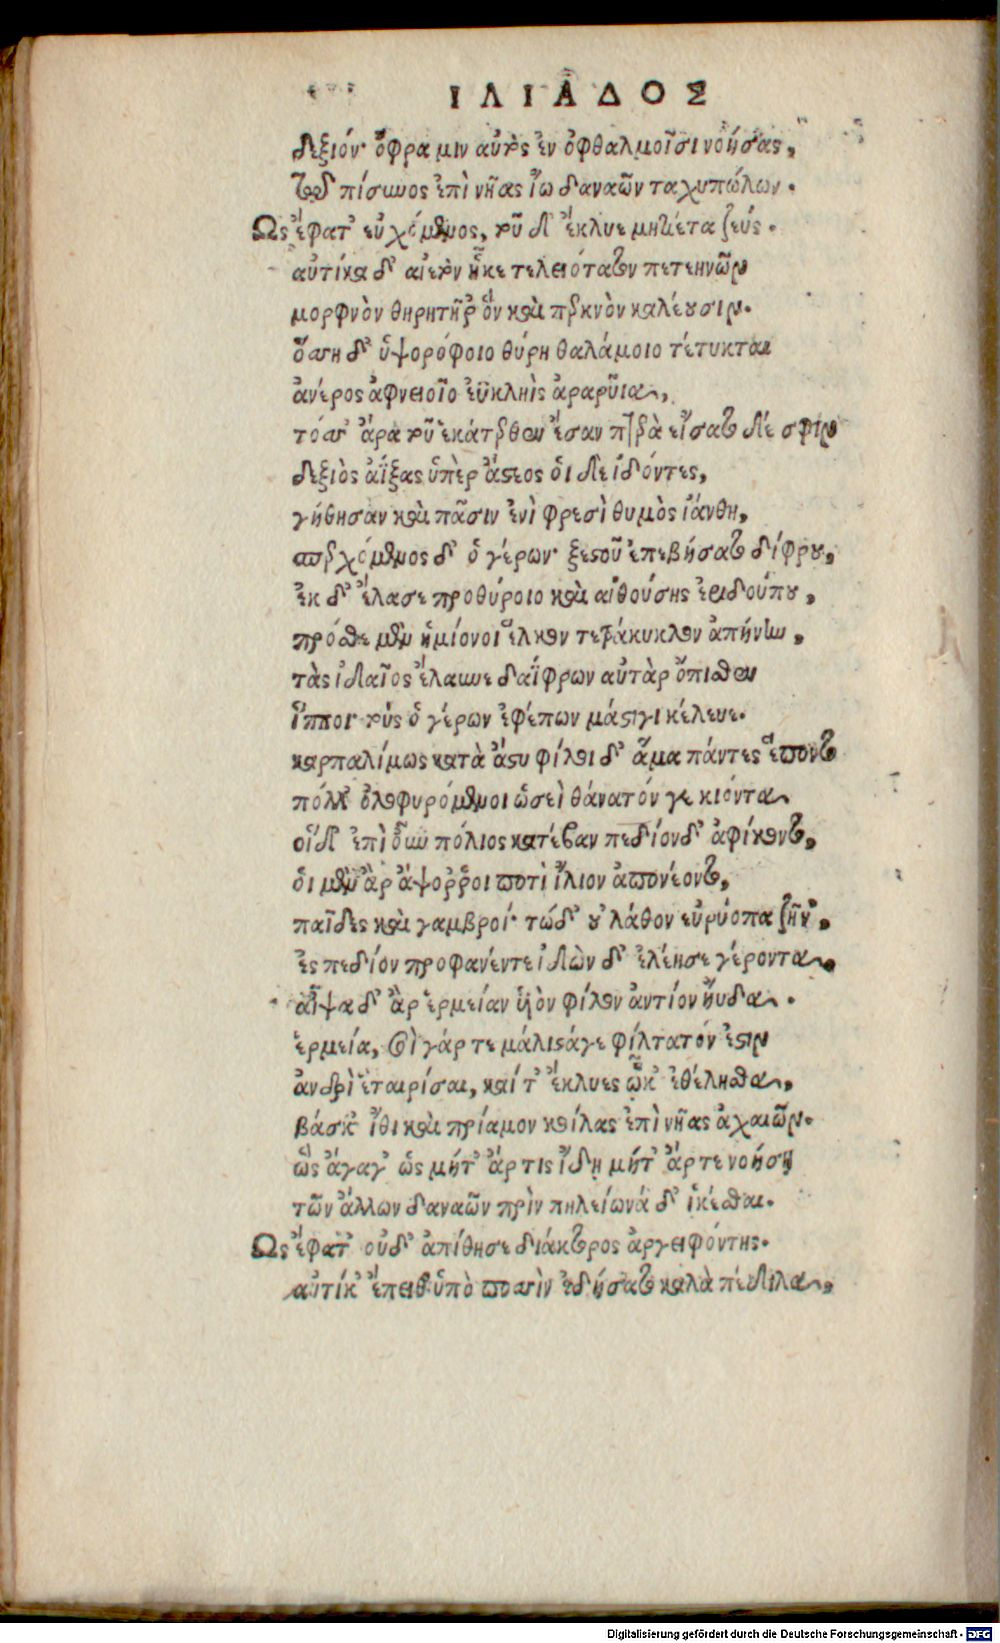 ΙΛΙΑΔΟΣ
δεξιόν· ὄφρα μιν αὐτὸς ἐν ὀφθαλμοῖσι νοήσας,
τῷ πίσυνος ἐπὶ νῆας ἴω δαναῶν ταχυπώλων.
Ως ἔφατ' εὐχόμενος, τοῦ δ' ἔκλυε μητίετα ζεύς.
αὐτίκα δ' αἰετὸν ἧκε τελειότατον πετεηνῶν
μορφνὸν θηρητῆρ' ὃν καὶ περκνὸν καλέουσιν.
ὅσση δ' ὑψορόφοιο θύρη θαλάμοιο τέτυκται
ἀνέρος ἀφνειοῖο ἐϋκληῒς ἀραρῦια,
τόσσ' ἄρα τοῦ ἑκάτερθεν ἔσαν πτερὰ εἴσατο δέ σφιν
δεξιὸς ἀΐξας ὑπὲρ ἄστεος ὁι δὲ ἰδόντες,
γήθησαν καὶ πᾶσιν ἐνὶ φρεσὶ θυμὸς ἰάνθη,
σπερχόμενος δ' ὁ γέρων· ξεστοῦ ἐπεβήσατο δίφρου,
ἐκ δ' ἔλασε προθύροιο καὶ αἰθούσης ἐριδούπου,
πρόσθε μὲν ἡμίονοι ἕλκον τετράκυκλον ἀπήνην,
τὰς ἰδαῖος ἔλαυνε δαΐφρων αὐτὰρ ὄπισθεν
ἵπποι τοὺς ὁ γέρων ἐφέπων μάστιγι κέλευε.
καρπαλίμως κατὰ ἄστυ φίλοι δ' ἅμα πάντες ἕποντο
πόλλ' ὀλοφυρόμενοι ὡσεὶ θάνατόν γε κιόντα
οἳ δ' ἐπεὶ οὖν πόλιος κατέβαν πεδίονδ' ἀφίκοντο,
ὁι μὲν ἂρ ἄψορροι ποτὶ ἴλιον ἀπονέοντο,
παῖδες καὶ γαμβροί· τώδ' ου' λάθον εὐρύοπα ζῆν',
ἐς πεδίον προφανέντε ἰδὼν δ' ἐλέησε γέροντα,
αἶψα δ' ἂρ ἑρμείαν ὑιὸν φίλον ἀντίον ἤυδα.
ἑρμεία, σοὶ γάρ τε μάλιστάγε φίλτατόν ἐστιν
ἀνδρὶ ἑταιρίσαι, καί τ' ἔκλυες ᾧκ' ἐθέλησθα,
βάσκ' ἴθι καὶ πρίαμον κοίλας ἐπὶ νῆας ἀχαιῶν.
ὣς ἄγαγ' ὡς μήτ' ἄρ τις ἴδη μήτ' ἄρ τε νοήσῃ
τῶν ἄλλων δαναῶν πρὶν πηλείωνά δ' ἱκέσθαι.
Ως ἔφατ' οὐδ' ἀπίθησε διάκτορος ἀργειφόντης.
αὐτίκ' ἔπειθ' ὑπὸ ποσσὶν ἐδήσατο καλὰ πέδιλα,
Digitalisierung gefördert durch die Deutsche Forschungsgemeinschaft - DFG